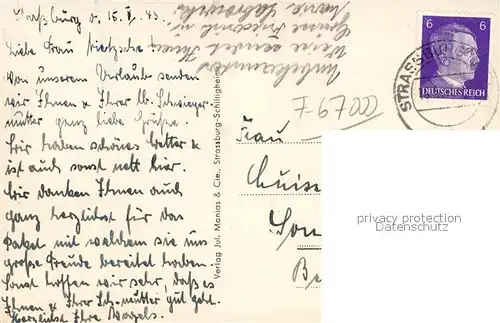 Straßburg d. 15.V. 43.
Liebe Frau Nietzsche!
Von unserem Urlaube senden
wir Ihnen & Ihrer lb. Schwieger-
mutter ganz liebe Grüße.
Wir haben schönes Wetter &
ist auch sonst nett hier.
Wir danken Ihnen auch
ganz herzlichst für das
Paket mit welchem sie uns
große Freude bereitet haben.
Sonst hoffen wir sehr, daß es
Ihnen & Ihrer Sch.-mutter gut geht.
Herzlichst Ihre Vogels.
Unbekannterweise sendet Ihnen
Grüße
Verlag Jul. Manias & Cie., Strassburg-Schiltigheim
F 67000
6 6
DEUTSCHES REICH
STRASSBURG
Frau
Luise
Son
Be
privacy protection
Datenschutz